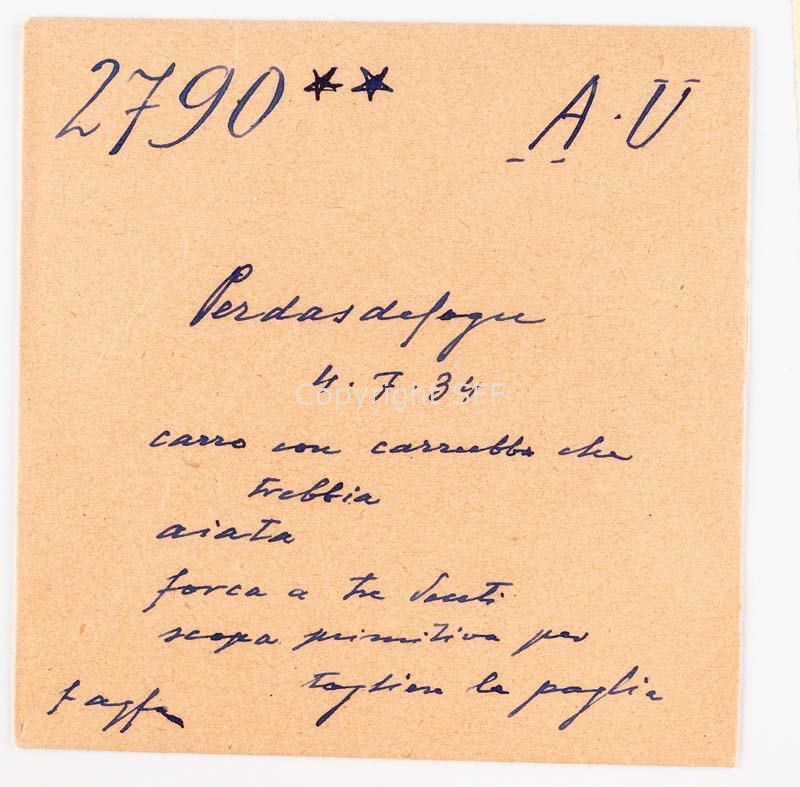 2790 ★★ A. U
Perdasdefogu
4.7.34
Copyright SFF
carro con carrubbo che
trebbia
aiata
forca a tre denti
scopa primitiva per
togliere la paglia
f agfa